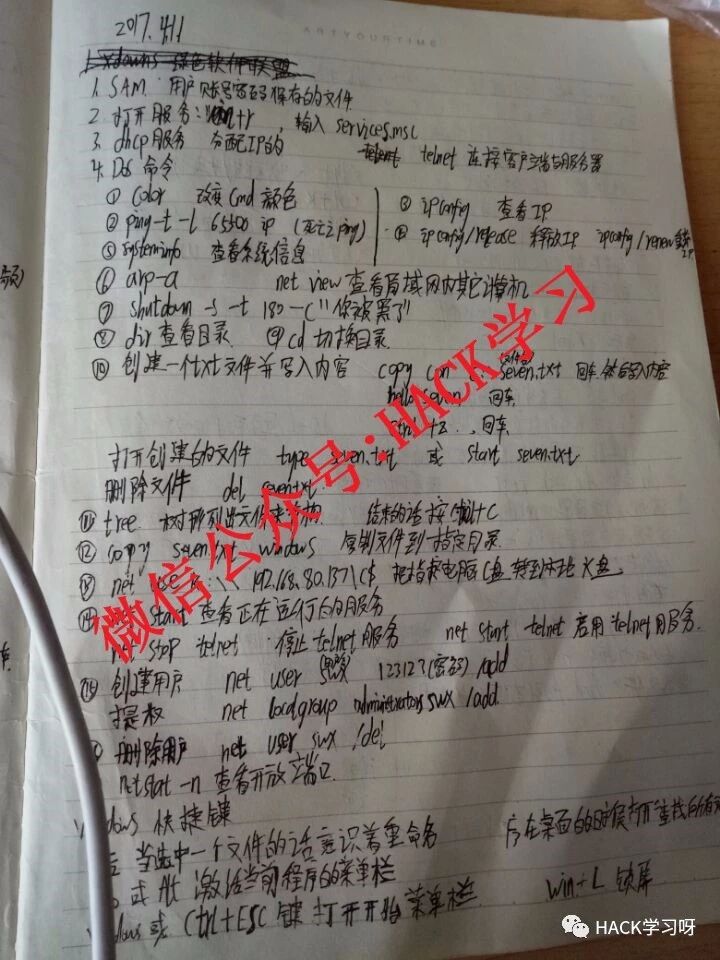 2017.4.11
1. xdowns 绿色软件联盟
1. SAM 用户账号密码保存的文件
2. 打开服务: win+r , 输入 services.msc
3. dhcp服务 分配IP的 telnet telnet 连接客户端与服务器
4. Dos 命令
① color 改变cmd颜色
② ping -t -l 65500 ip (死亡之ping)
③ ipconfig 查看IP
④ ipconfig/release 释放IP ipconfig/renew
⑤ systeminfo 查看系统信息
⑥ arp-a net view 查看局域网内其它计算机
⑦ shutdown -s -t 180 -c "你被黑了"
⑧ dir 查看目录 ⑨ cd 切换目录
⑩ 创建一个txt文件并写入内容 copy con seven.txt 回车 然后写入内容
hello seven 回车
ctrl+z 回车
打开创建的文件 type seven.txt 或 start seven.txt
删除文件 del seven.txt
⑪ tree 树形列出文件夹结构 结束的话按Ctrl+C
⑫ copy seven.txt windows 复制文件到一指定目录
net use 192.168.80.137\c$ 把指定电脑C盘 到本地K盘
start 查看正在运行的服务
net stop telnet 停止telnet服务 net start telnet 启用telnet服务.
⑮ 创建用户 net user 123123(密码) /add
提权 net localgroup administrators swx /add
删除用户 net user swx /del
netstat -n 查看开放端口
快捷键
当选中一个文件的话意识着重命名 在桌面的时候打开查找所有
或 Alt 激活当前程序的菜单栏
或 Ctrl+ESC 键 打开开始菜单栏 win+L 锁屏
微信公众号:HACK学习
HACK学习呀